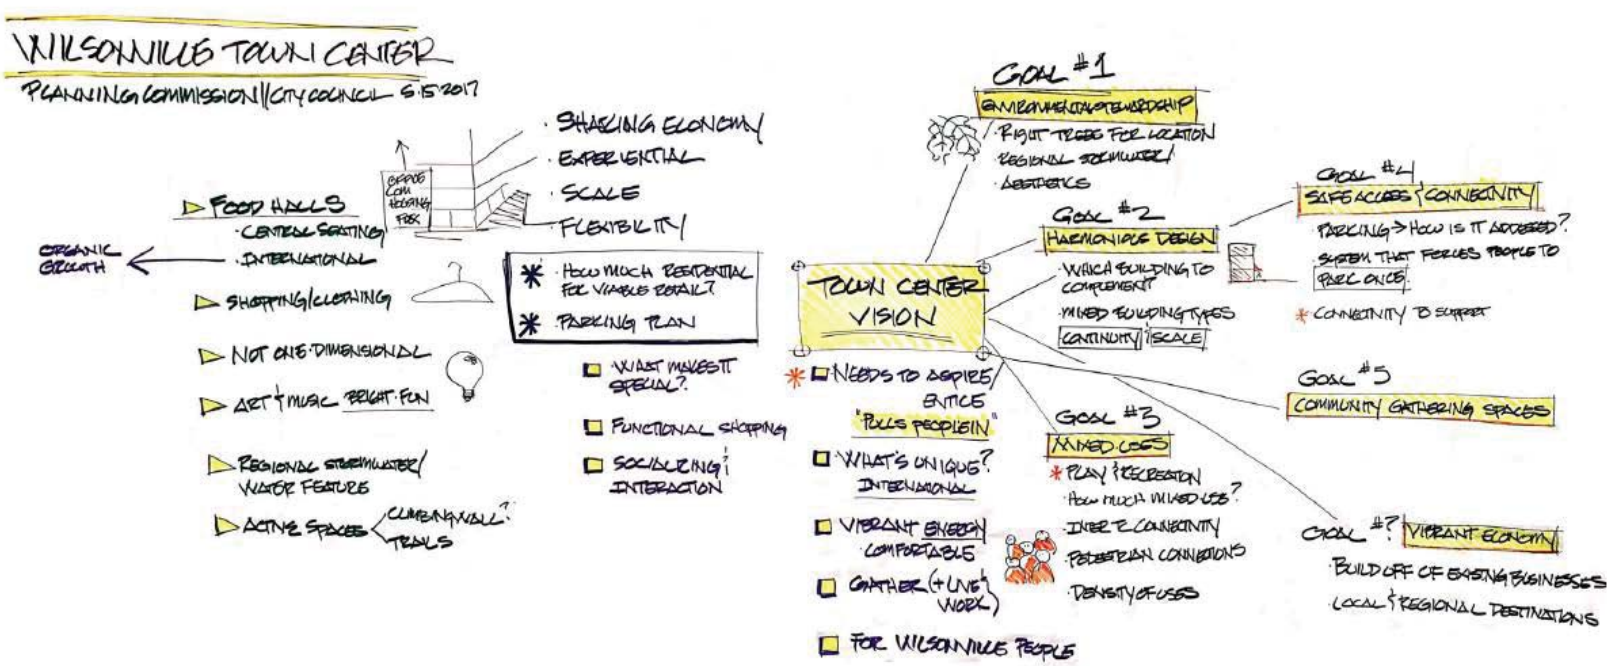 WILSONVILLE TOWN CENTER
PLANNING COMMISSION // CITY COUNCIL 5.15.2017
OFFICE
COM
HOUSING
FLEX
· SHARING ECONOMY
· EXPERIENTIAL
· SCALE
FLEXIBILITY
FOOD HALLS
· CENTRAL SEATING
· INTERNATIONAL
ORGANIC
GROWTH
SHOPPING/CLOTHING
NOT ONE-DIMENSIONAL
ART & MUSIC BRIGHT-FUN
REGIONAL STORMWATER/
WATER FEATURE
ACTIVE SPACES
CLIMBING WALL?
TRAILS
· HOW MUCH RESIDENTIAL
FOR VIABLE RETAIL?
· PARKING PLAN
WHAT MAKES IT
SPECIAL?
FUNCTIONAL SHOPPING
SOCIALIZING &
INTERACTION
TOWN CENTER
VISION
* NEEDS TO ASPIRE/
ENTICE
"PULLS PEOPLE IN"
WHAT'S UNIQUE?
INTERNATIONAL
VIBRANT ENERGY
· COMFORTABLE
GATHER (+ LIVE &
WORK)
FOR WILSONVILLE PEOPLE
GOAL #1
ENVIRONMENTAL STEWARDSHIP
· RIGHT TREES FOR LOCATION
· REGIONAL STORMWATER/
· AESTHETICS
GOAL #2
HARMONIOUS DESIGN
· WHICH BUILDING TO
COMPLEMENT?
· MIXED BUILDING TYPES
CONTINUITY & SCALE
GOAL #3
MIXED-USES
* PLAY & RECREATION
· HOW MUCH MIXED USE?
· CONNECTIVITY
· PEDESTRIAN CONNECTIONS
· DENSITY OF USES
GOAL #4
SAFE ACCESS & CONNECTIVITY
PARKING → HOW IS IT ADDRESSED?
· SYSTEM THAT FORCES PEOPLE TO
PARK ONCE.
* CONNECTIVITY TO SUPPORT
GOAL #5
COMMUNITY GATHERING SPACES
GOAL #? VIBRANT ECONOMY
· BUILD OFF OF EXISTING BUSINESSES
· LOCAL & REGIONAL DESTINATIONS